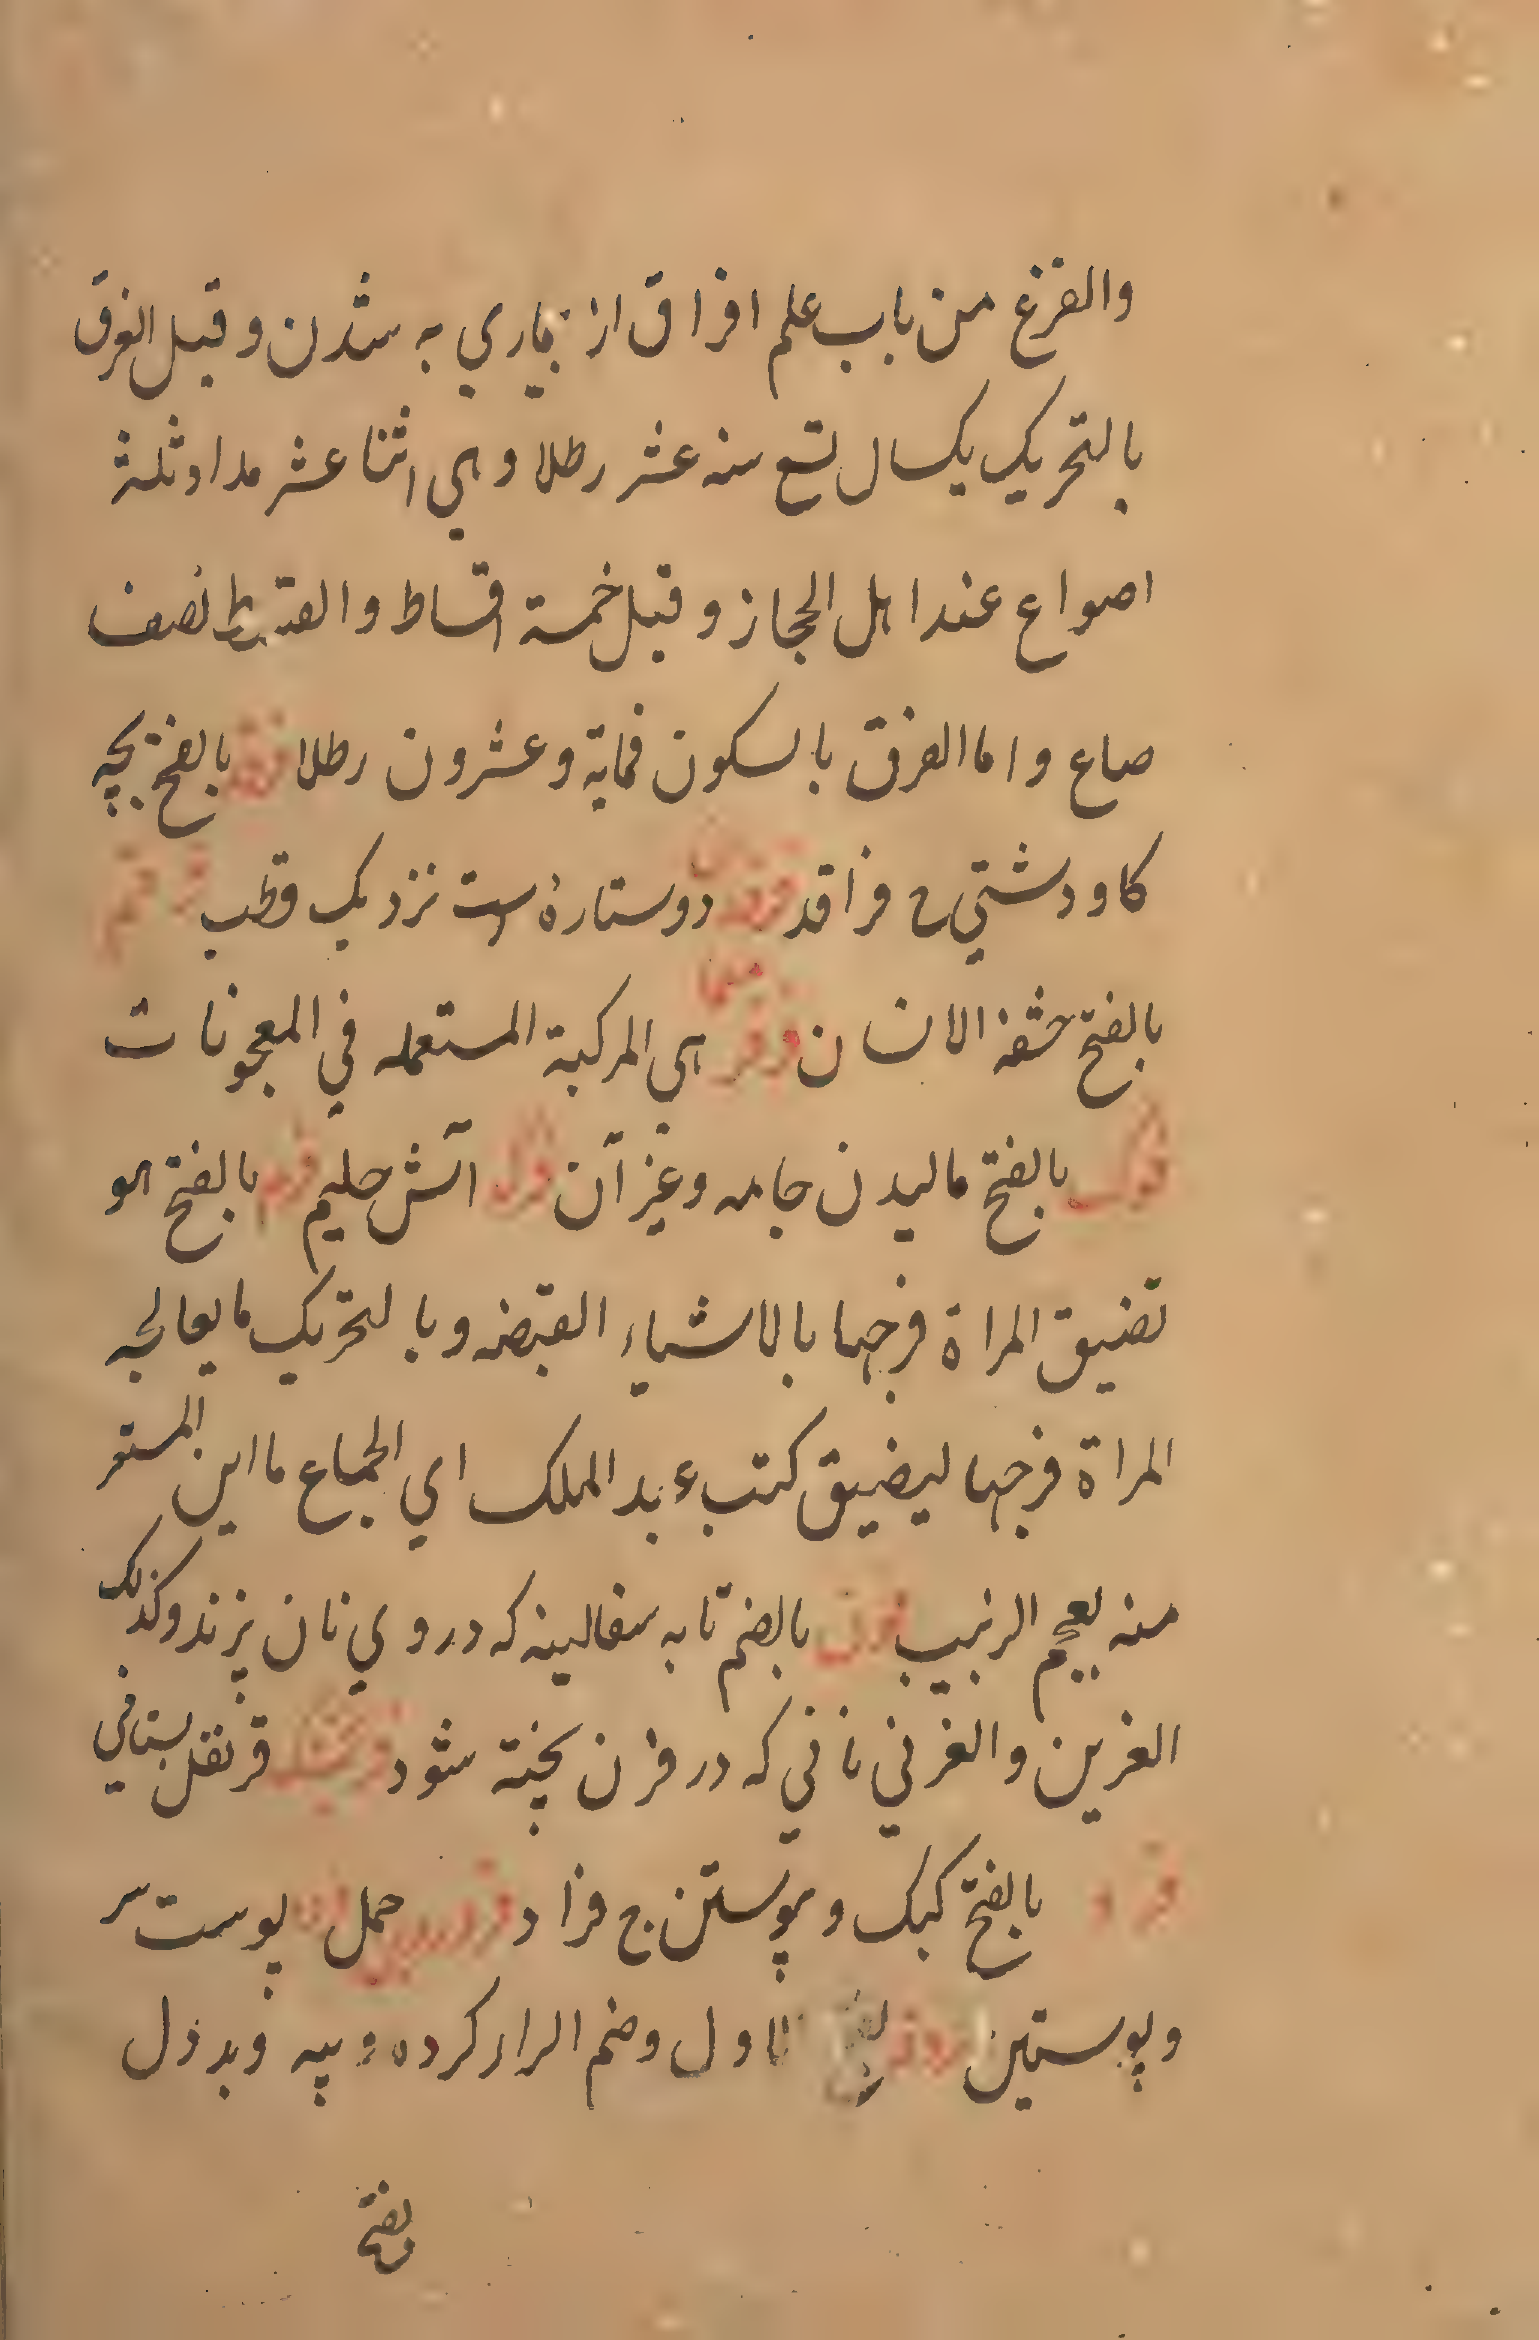 والفزع من باب علم افراق از بیماري به شدن و قیل الفرق
بالتحریک یکسال تسع سنه عشر رطلا و هي اثنا عشر مدا و ثلثة
اصواع عند اهل الحجاز و قیل خمسة اقساط و القسط نصف
صاع و اما الفرق بالسکون فمایة و عشرون رطلا فرقد بالفتح بچه
کاو دشتي ج فراقد فرقدان دو ستارۀ است نزدیک قطب
بالفتح حشفة الانسان هي المرکبة المستعمله في المعجونات
فرک بالفتح مالیدن جامه و غیر آن آتش حلیم فرم بالفتح هو
تضیق المراة فرجها بالاشیاء القبضه و بالتحریک ما یعالجه
المراة فرجها لیضیق کتب عبد الملک اي الحجاج ما ابن المستفر
منه بعجم الزبیب فرن بالضم تابه سفالینه که در وي نان پزند و کذلک
الفرین و الفرني ناني که در فرن پخته شود قرنفل بستاني
بالفتح کبک و پوستن ج فرا د حمل پوست سر
و پوستین بفتح الاول و ضم الراء کرده و پیه و بد دل
بفتح